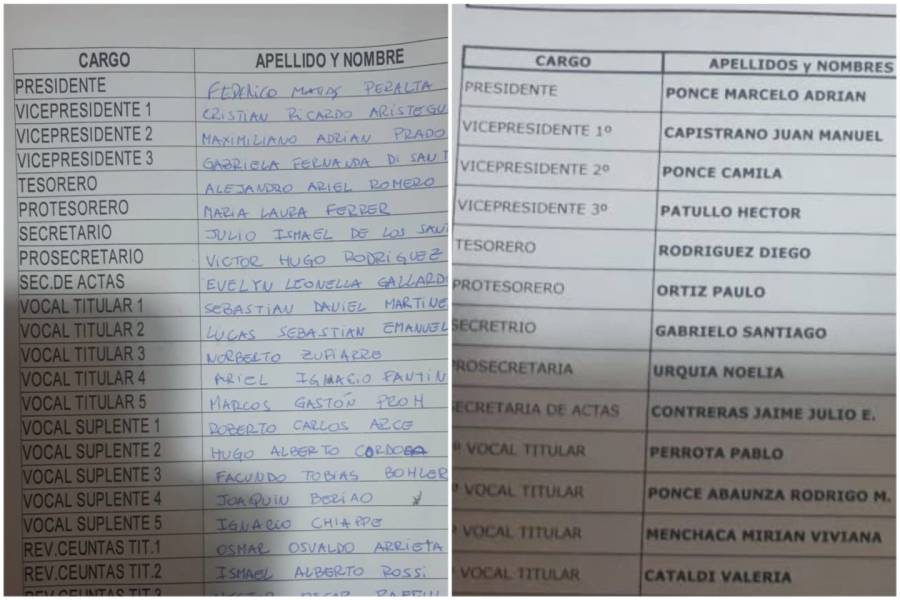 CARGO APELLIDO Y NOMBRE
PRESIDENTE FEDERICO MATIAS PERALTA
VICEPRESIDENTE 1 CRISTIAN RICARDO ARISTEGU
VICEPRESIDENTE 2 MAXIMILIANO ADRIAN PRADO
VICEPRESIDENTE 3 GABRIELA FERNANDA DI SAN T
TESORERO ALEJANDRO ARIEL ROMERO
PROTESORERO MARIA LAURA FERRER
SECRETARIO JULIO ISMAEL DE LOS SANT
PROSECRETARIO VICTOR HUGO RODRIGUEZ
SEC.DE ACTAS EVELYN LEONELLA GALLARD
VOCAL TITULAR 1 SEBASTIAN DANIEL MARTINE
VOCAL TITULAR 2 LUCAS SEBASTIAN EMANUEL
VOCAL TITULAR 3 NORBERTO
VOCAL TITULAR 4 ARIEL IGNACIO FANTIN
VOCAL TITULAR 5 MARCOS GASTÓN
VOCAL SUPLENTE 1 ROBERTO CARLOS ARCE
VOCAL SUPLENTE 2 HUGO ALBERTO
VOCAL SUPLENTE 3 FACUNDO TOBIAS BOHLER
VOCAL SUPLENTE 4 JOAQUIN
VOCAL SUPLENTE 5 IGNACIO CHIAPPE
REV.CEUNTAS TIT.1 OSMAR OSVALDO ARRIETA
REV.CEUNTAS TIT.2 ISMAEL ALBERTO ROSSI
REV.CEUNTAS TIT.3
CARGO APELLIDOS y NOMBRES
PRESIDENTE PONCE MARCELO ADRIAN
VICEPRESIDENTE 1º CAPISTRANO JUAN MANUEL
VICEPRESIDENTE 2º PONCE CAMILA
VICEPRESIDENTE 3º PATULLO HECTOR
TESORERO RODRIGUEZ DIEGO
PROTESORERO ORTIZ PAULO
SECRETRIO GABRIELO SANTIAGO
PROSECRETARIA URQUIA NOELIA
SECRETARIA DE ACTAS CONTRERAS JAIME JULIO E.
º VOCAL TITULAR PERROTA PABLO
º VOCAL TITULAR PONCE ABAUNZA RODRIGO M.
º VOCAL TITULAR MENCHACA MIRIAN VIVIANA
VOCAL TITULAR CATALDI VALERIA